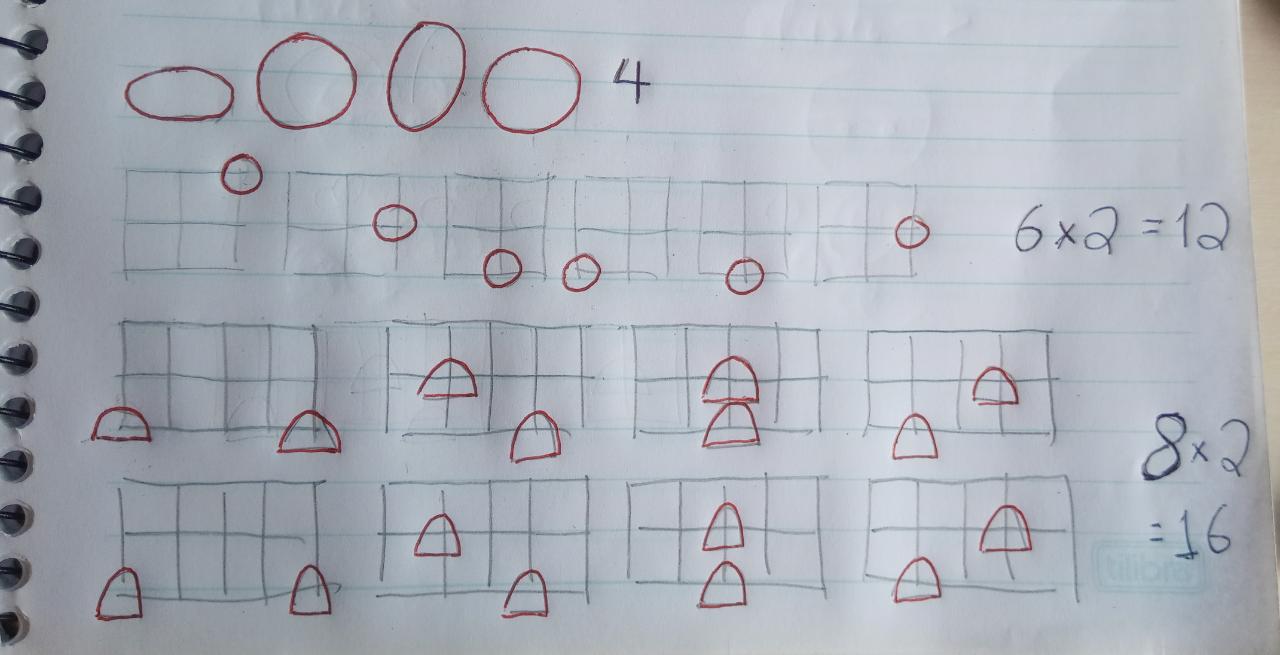 4
6×2=12
8×2
=16
tilibra